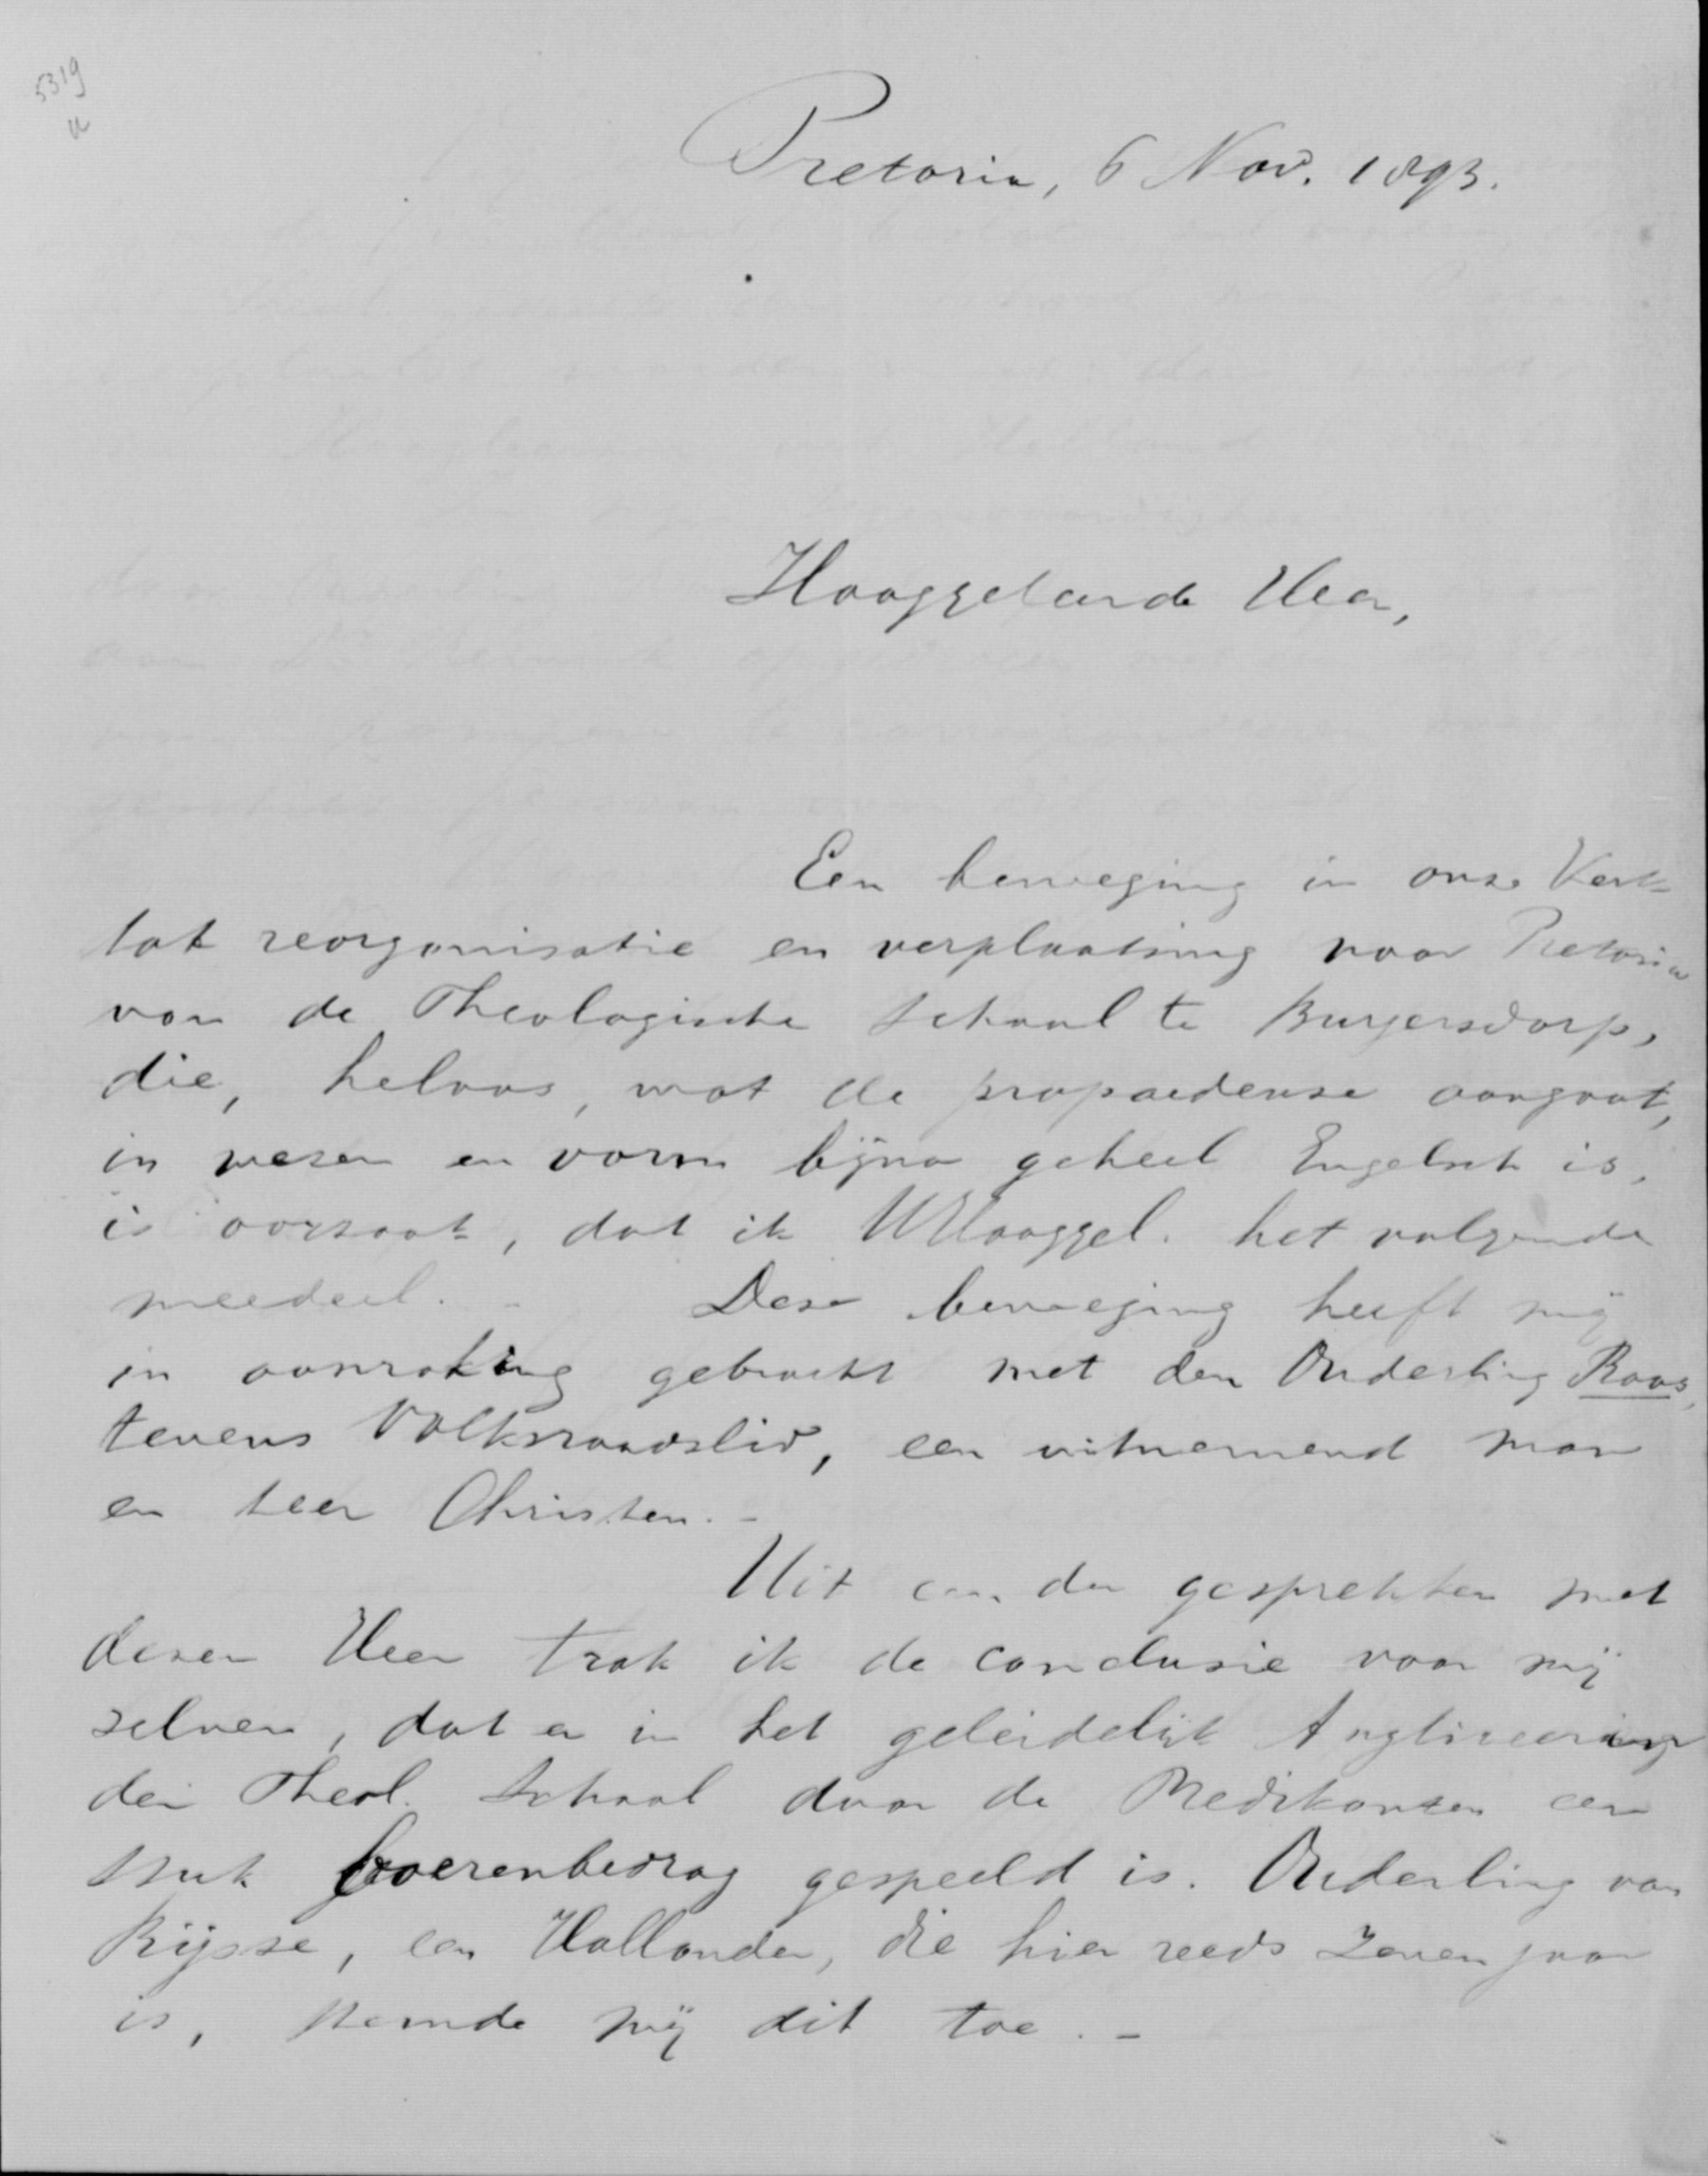 5319
Pretoria, 6 Nov. 1893.
Hooggeleerde Heer,
Een beweging in onze Kerk
tot reorganisatie en verplaatsing naar Pretoria
van de Theologische School te Burgersdorp,
die, helaas, wat de propaedeuse aangaat,
in wezen en vorm bijna geheel Engelsch is,
is oorzaak, dat ik UHooggel. het volgende
meedeel. - Deze beweging heeft mij
in aanraking gebracht met den Ouderling Roos,
tevens Volksraadslid, een uitnemend man
en teer Christen. -
Uit een der gesprekken met
dezen Heer trok ik de conclusie voor mij
zelven, dat er in het geleidelijk Angliseering
der Theol. School door de Predikanten een
stuk boerenbedrog gespeeld is. Ouderling van
Rijsse, een Hollander, die hier reeds zeven jaar
is, stemde mij dit toe. -